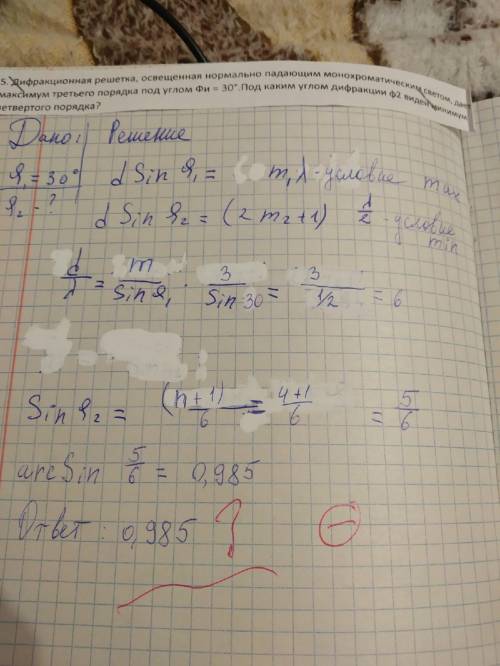 5. Дифракционная решетка, освещенная нормально падающим монохроматическим светом, дает
максимум третьего порядка под углом Фи = 30°.Под каким углом дифракции ф2 виден минимум
четвертого порядка?
Дано: Решение
φ₁ = 30°
φ₂ - ?
d Sin φ₁ = m₁ λ - условие max
d Sin φ₂ = (2 m₂ + 1) λ/2 - условие min
d/λ = m/Sin φ₁ · 3/Sin 30 = 3/1/2 = 6
Sin φ₂ = (n+1)/6 = 4+1/6 = 5/6
arcSin 5/6 = 0,985
Ответ: 0,985 ?